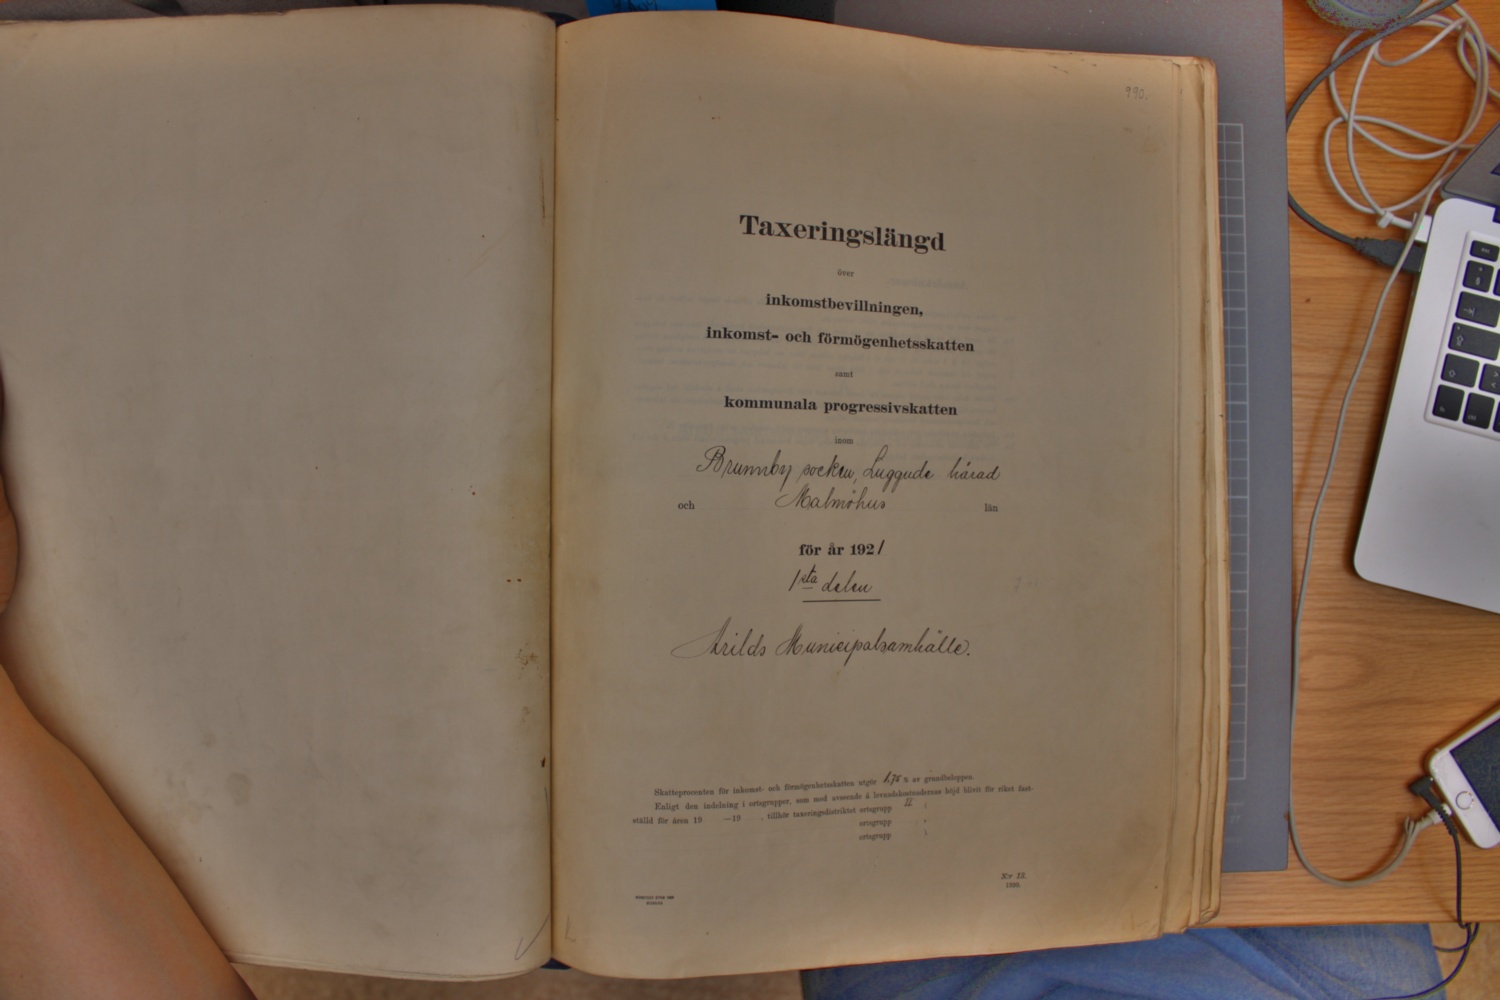 990.
Taxeringslängd
över
inkomstbevillningen,
inkomst- och förmögenhetsskatten
samt
kommunala progressivskatten
inom
Brunnby socken, Luggude härad
och Malmöhus län
för år 1921
1sta delen
Arilds Municipalsamhälle.
Skatteprocenten för inkomst- och förmögenhetsskatten utgör 1,75 % av grundbeloppen.
Enligt den indelning i ortsgrupper, som med avseende å levnadskostnadernas höjd blivit för riket fast-
ställd för åren 19 —19 , tillhör taxeringsdistriktet ortsgrupp II
ortsgrupp
ortsgrupp
N:r 13.
1920.